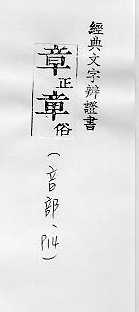 經典文字辨證書
章正章俗
(音部、P14)